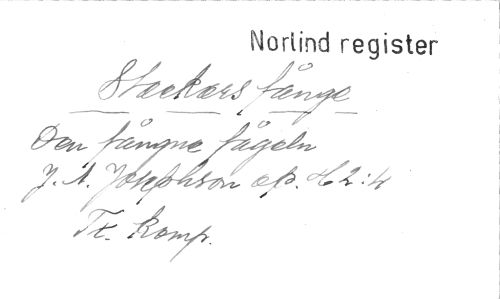 Norlind register
Stackars fånge
Den fångne fågeln
J. A. Josephson op. 42:4
Tr. komp.